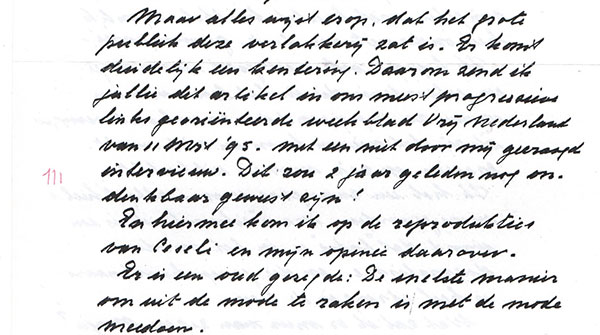 Maar alles wijst erop, dat het grote
publiek deze verlakkerij zat is. Er komt
duidelijk een kentering. Daarom zend ik
jullie dit artikel in ons meest progressieve
links georiënteerde weekblad Vrij Nederland
van 11 Mrt '95. met een niet door mij gevraagd
111
interview. Dit zou 2 jaar geleden nog on-
denkbaar geweest zijn!
En hiermee kom ik op de reprodukties
van Coseli en mijn opinie daarover.
Er is een oud gezegde: De snelste manier
om uit de mode te raken is met de mode
meedoen.